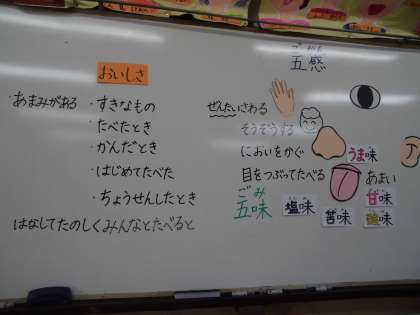 おいしさ
・あまみがある
・すきなもの
・たべたとき
・かんだとき
・はじめてたべた
・ちょうせんしたとき
はなしてたのしくみんなとたべると
ごかん
五感
ぜんたいさわる
そうぞうする
においをかぐ
目をつぶってたべる
ごみ
五味
うま味
あまい
甘味
塩味
苦味
酸味